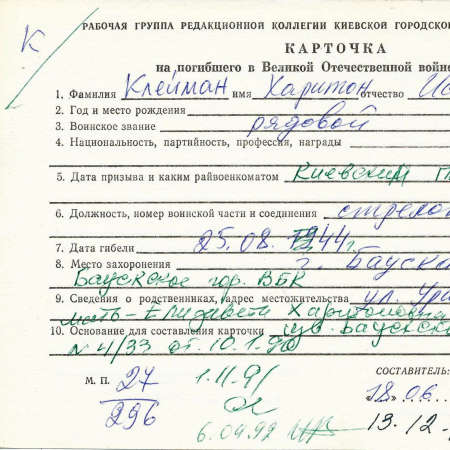 К
РАБОЧАЯ ГРУППА РЕДАКЦИОННОЙ КОЛЛЕГИИ КИЕВСКОЙ ГОРОДСКО
КАРТОЧКА
на погибшего в Великой Отечественной войне
1. Фамилия Клейман имя Харитон отчество Ис
2. Год и место рождения
3. Воинское звание рядовой
4. Национальность, партийность, профессия, награды
5. Дата призыва и каким райвоенкоматом Киевским Г
6. Должность, номер воинской части и соединения стрелок
7. Дата гибели 25.08.1944 г.
8. Место захоронения г. Бауска
Баускское гор. ВБК
9. Сведения о родственниках, адрес местожительства ул. Ура
мать - Елизавета Харитоновна
10. Основание для составления карточки изв. Баускско
N 4/33 от 10.1.90
СОСТАВИТЕЛЬ:
М. П. 27 1.11.91 «18» 06
296
6.04.92 13.12.